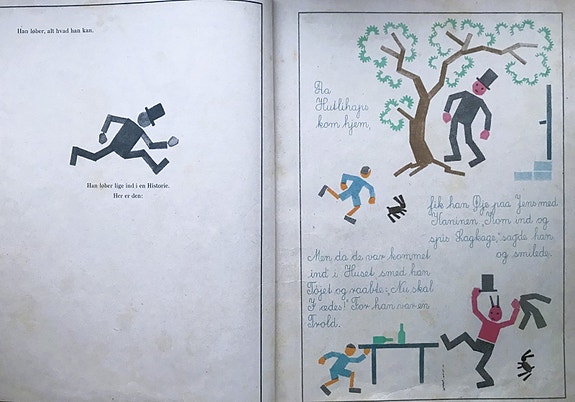 Han løber, alt hvad han kan.
Han løber lige ind i en Historie.
Her er den:
Da
Hutlihaps
kom hjem,
fik han Øje paa Jens med
Kaninen. „Kom ind og
spis Lagkage,” sagde han
og smilede.
Men da de var kommet
ind i Huset, smed han
Tøjet og raabte: „Nu skal
I ædes!” For han var en
Trold.